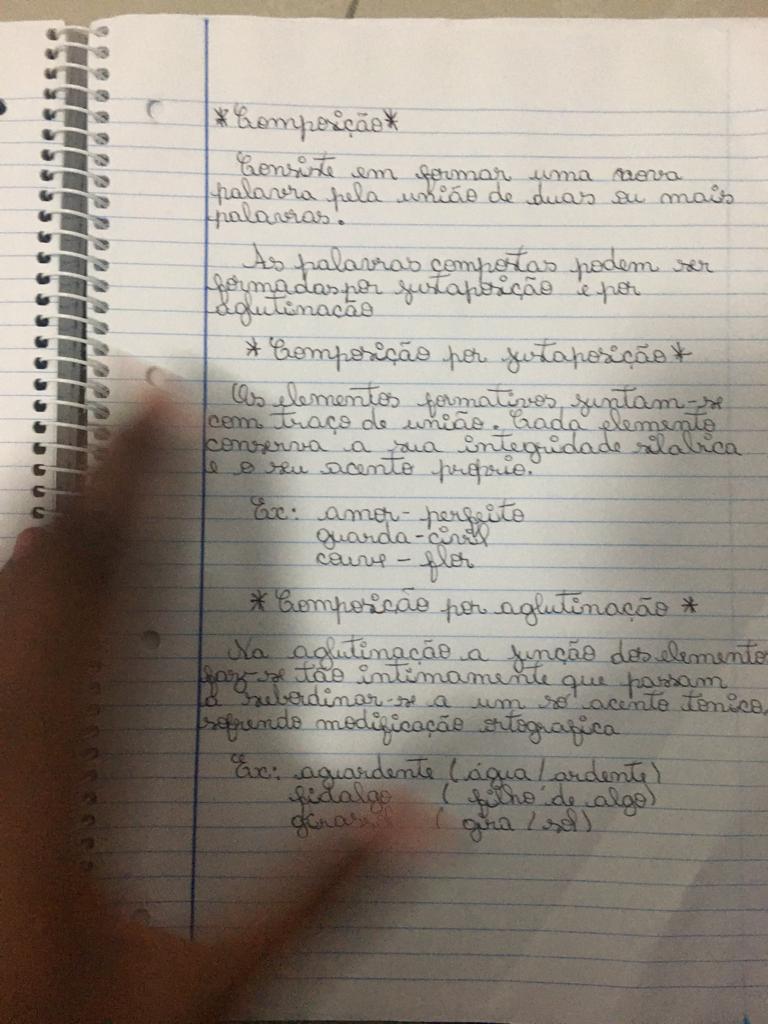 *Composição*
Consiste em formar uma nova
palavra pela união de duas ou mais
palavras.
As palavras compostas podem ser
formadas por justaposição e por
aglutinação
*Composição por justaposição*
Os elementos formativos juntam-se
com traço de união. Cada elemento
conserva a sua integridade silabica
e o seu acento proprio.
Ex: amor-perfeito
guarda-civil
couve-flor
*Composicão por aglutinação*
Na aglutinação a junção dos elementos
faz-se tão intimamente que passam
a subordinar-se a um só acento tonico,
sofrendo modificação ortografica
Ex: aguardente (água/ardente)
fidalgo (filho de algo)
(gira/sol)